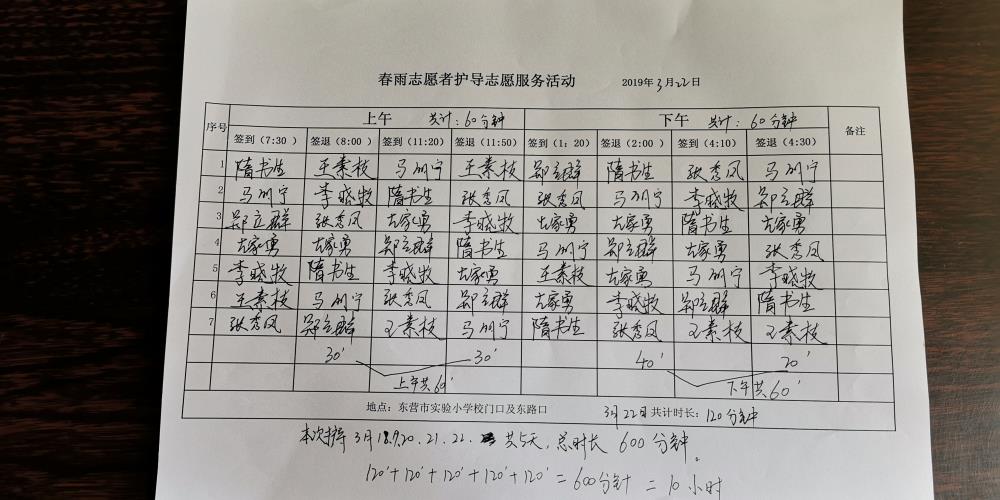 春雨志愿者护导志愿服务活动 2019年3月22日
序号 上午 共计：60分钟 下午 共计：60分钟 备注
签到（7:30） 签退（8:00） 签到（11:20） 签退（11:50） 签到（1：20） 签退（2:00） 签到（4:10） 签退（4:30）
1 隋书生 王素枝 马训宁 王素枝 郑立群 隋书生 张秀凤 马训宁
2 马训宁 李晓牧 隋书生 张秀凤 张秀凤 马训宁 李晓牧 郑立群
3 郑立群 张秀凤 尤家勇 李晓牧 尤家勇 尤家勇 隋书生 尤家勇
4 尤家勇 尤家勇 郑立群 隋书生 马训宁 郑立群 尤家勇 张秀凤
5 李晓牧 隋书生 李晓牧 尤家勇 王素枝 尤家勇 马训宁 李晓牧
6 王素枝 马训宁 张秀凤 郑立群 尤家勇 李晓牧 郑立群 隋书生
7 张秀凤 郑立群 王素枝 马训宁 隋书生 张秀凤 王素枝 王素枝
30′ 30′ 40′ 20′
上午共60′ 下午共60′
地点：东营市实验小学校门口及东路口 3月22日共计时长：120分钟
3月18.19.20.21.22. 共5天，总时长 600分钟。
120′+120′+120′+120′+120′=600分钟=10小时